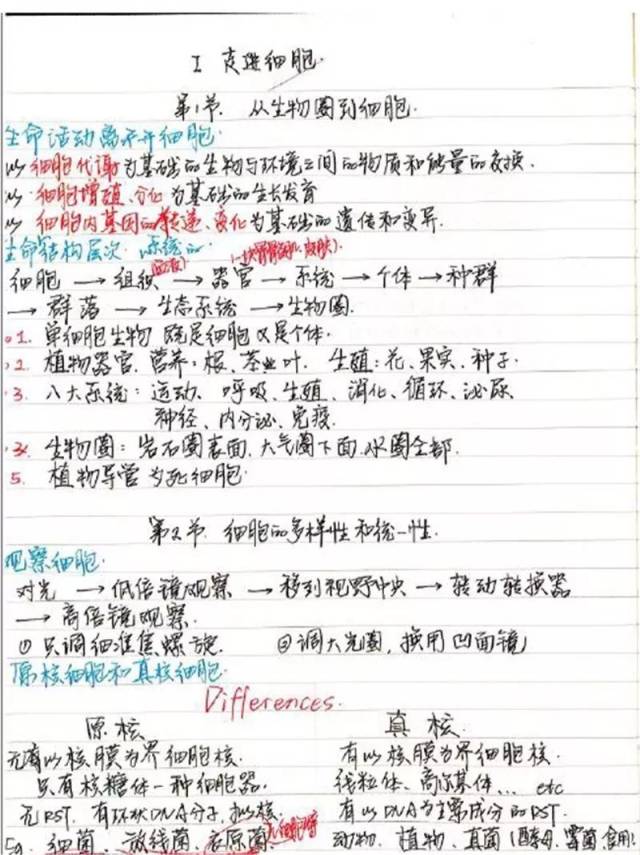 I 走进细胞.
第1节. 从生物圈到细胞.
生命活动离不开细胞.
以 细胞代谢为基础的生物与环境之间的物质和能量的交换.
以 细胞增殖、分化为基础的生长发育
以 细胞内基因的传递、变化为基础的遗传和变异.
生命结构层次. 系统的
细胞 → 组织 → 器官 → 系统 → 个体 → 种群
→ 群落 → 生态系统 → 生物圈.
1. 单细胞生物 既是细胞又是个体.
2. 植物器官. 营养: 根、茎、叶. 生殖: 花、果实、种子.
3. 八大系统: 运动、呼吸、生殖、消化、循环、泌尿、
神经、内分泌、免疫.
生物圈: 岩石圈表面. 大气圈下面. 水圈全部.
5. 植物导管为死细胞.
第2节. 细胞的多样性和统一性.
观察细胞.
对光 → 低倍镜观察 → 移到视野中央 → 转动转换器
→ 高倍镜观察.
① 只调细准焦螺旋. ② 调大光圈, 换用凹面镜
原核细胞和真核细胞.
Differences.
原核 真核.
无以核膜为界细胞核. 有以核膜为界细胞核.
只有核糖体一种细胞器. 线粒体、高尔基体... etc
无RST. 有环状DNA分子, 拟核. 有以DNA为主要成分的RST.
Eg. 细菌、放线菌、衣原菌 动物、植物、真菌 (酵母、霉菌、食用